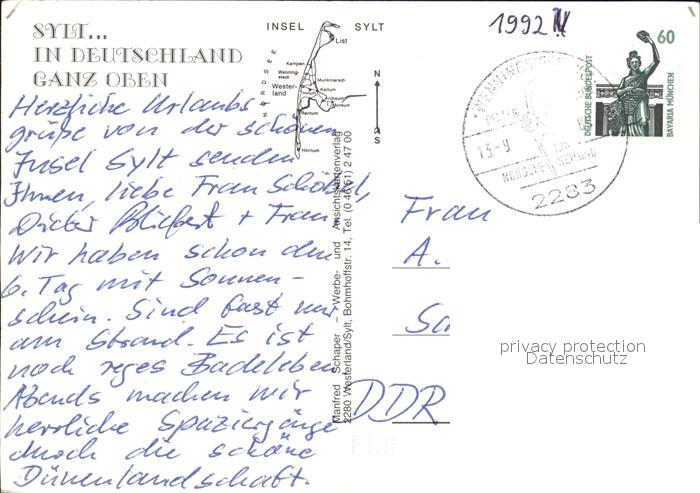 SYLT...
IN DEUTSCHLAND
GANZ OBEN
INSEL SYLT
NORDSEE
List
Kampen
Wenning-
stedt
Munkmarsch
Wester-
land
Keitum
Archsum
Morsum
Rantum
Hörnum
N
S
1992
60
DEUTSCHE BUNDESPOST
BAYARIA MÜNCHEN
13.-9
2283
Herzliche Urlaubs-
grüße von der schönen
Insel Sylt senden
Ihnen, liebe Frau
Dieter + Frau.
Wir haben schon den
6. Tag mit Sonnen-
schein. Sind fast nur
am Strand. Es ist
noch reges Badeleben
Abends machen wir
herrliche Spaziergänge
durch die schöne
Dünenlandschaft.
Manfred Schaper – Werbe- und Ansichtskartenverlag
2280 Westerland/Sylt, Bohmhoffstr. 14, Tel. (0 46 51) 2 47 00
Frau
A.
DDR
privacy protection
Datenschutz